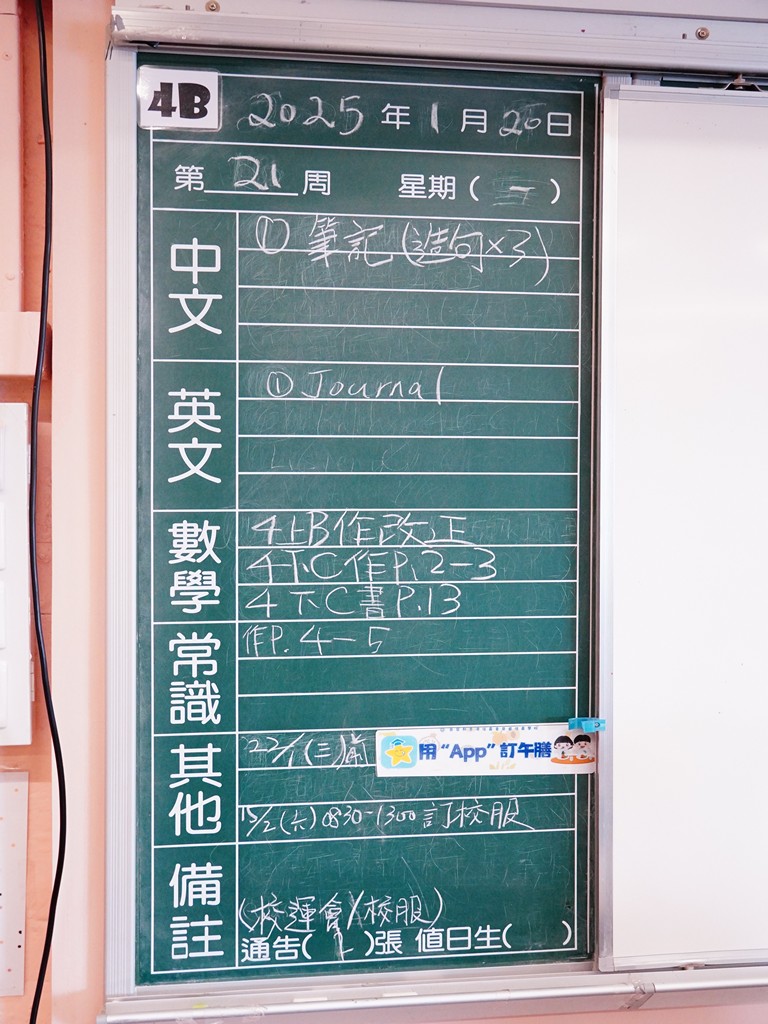 4B 2025年1月20日
第 21 周 星期(一)
中文
① 筆記(造句×3)
英文
① Journal
數學
4上B作改正
4下C作P.2-3
4下C書P.13
常識
作P.4-5
其他
22/1(三)前
用“App”訂午膳
15/2(六)0830-1300訂校服
備註
(校運會/校服)
通告(2)張 值日生( )